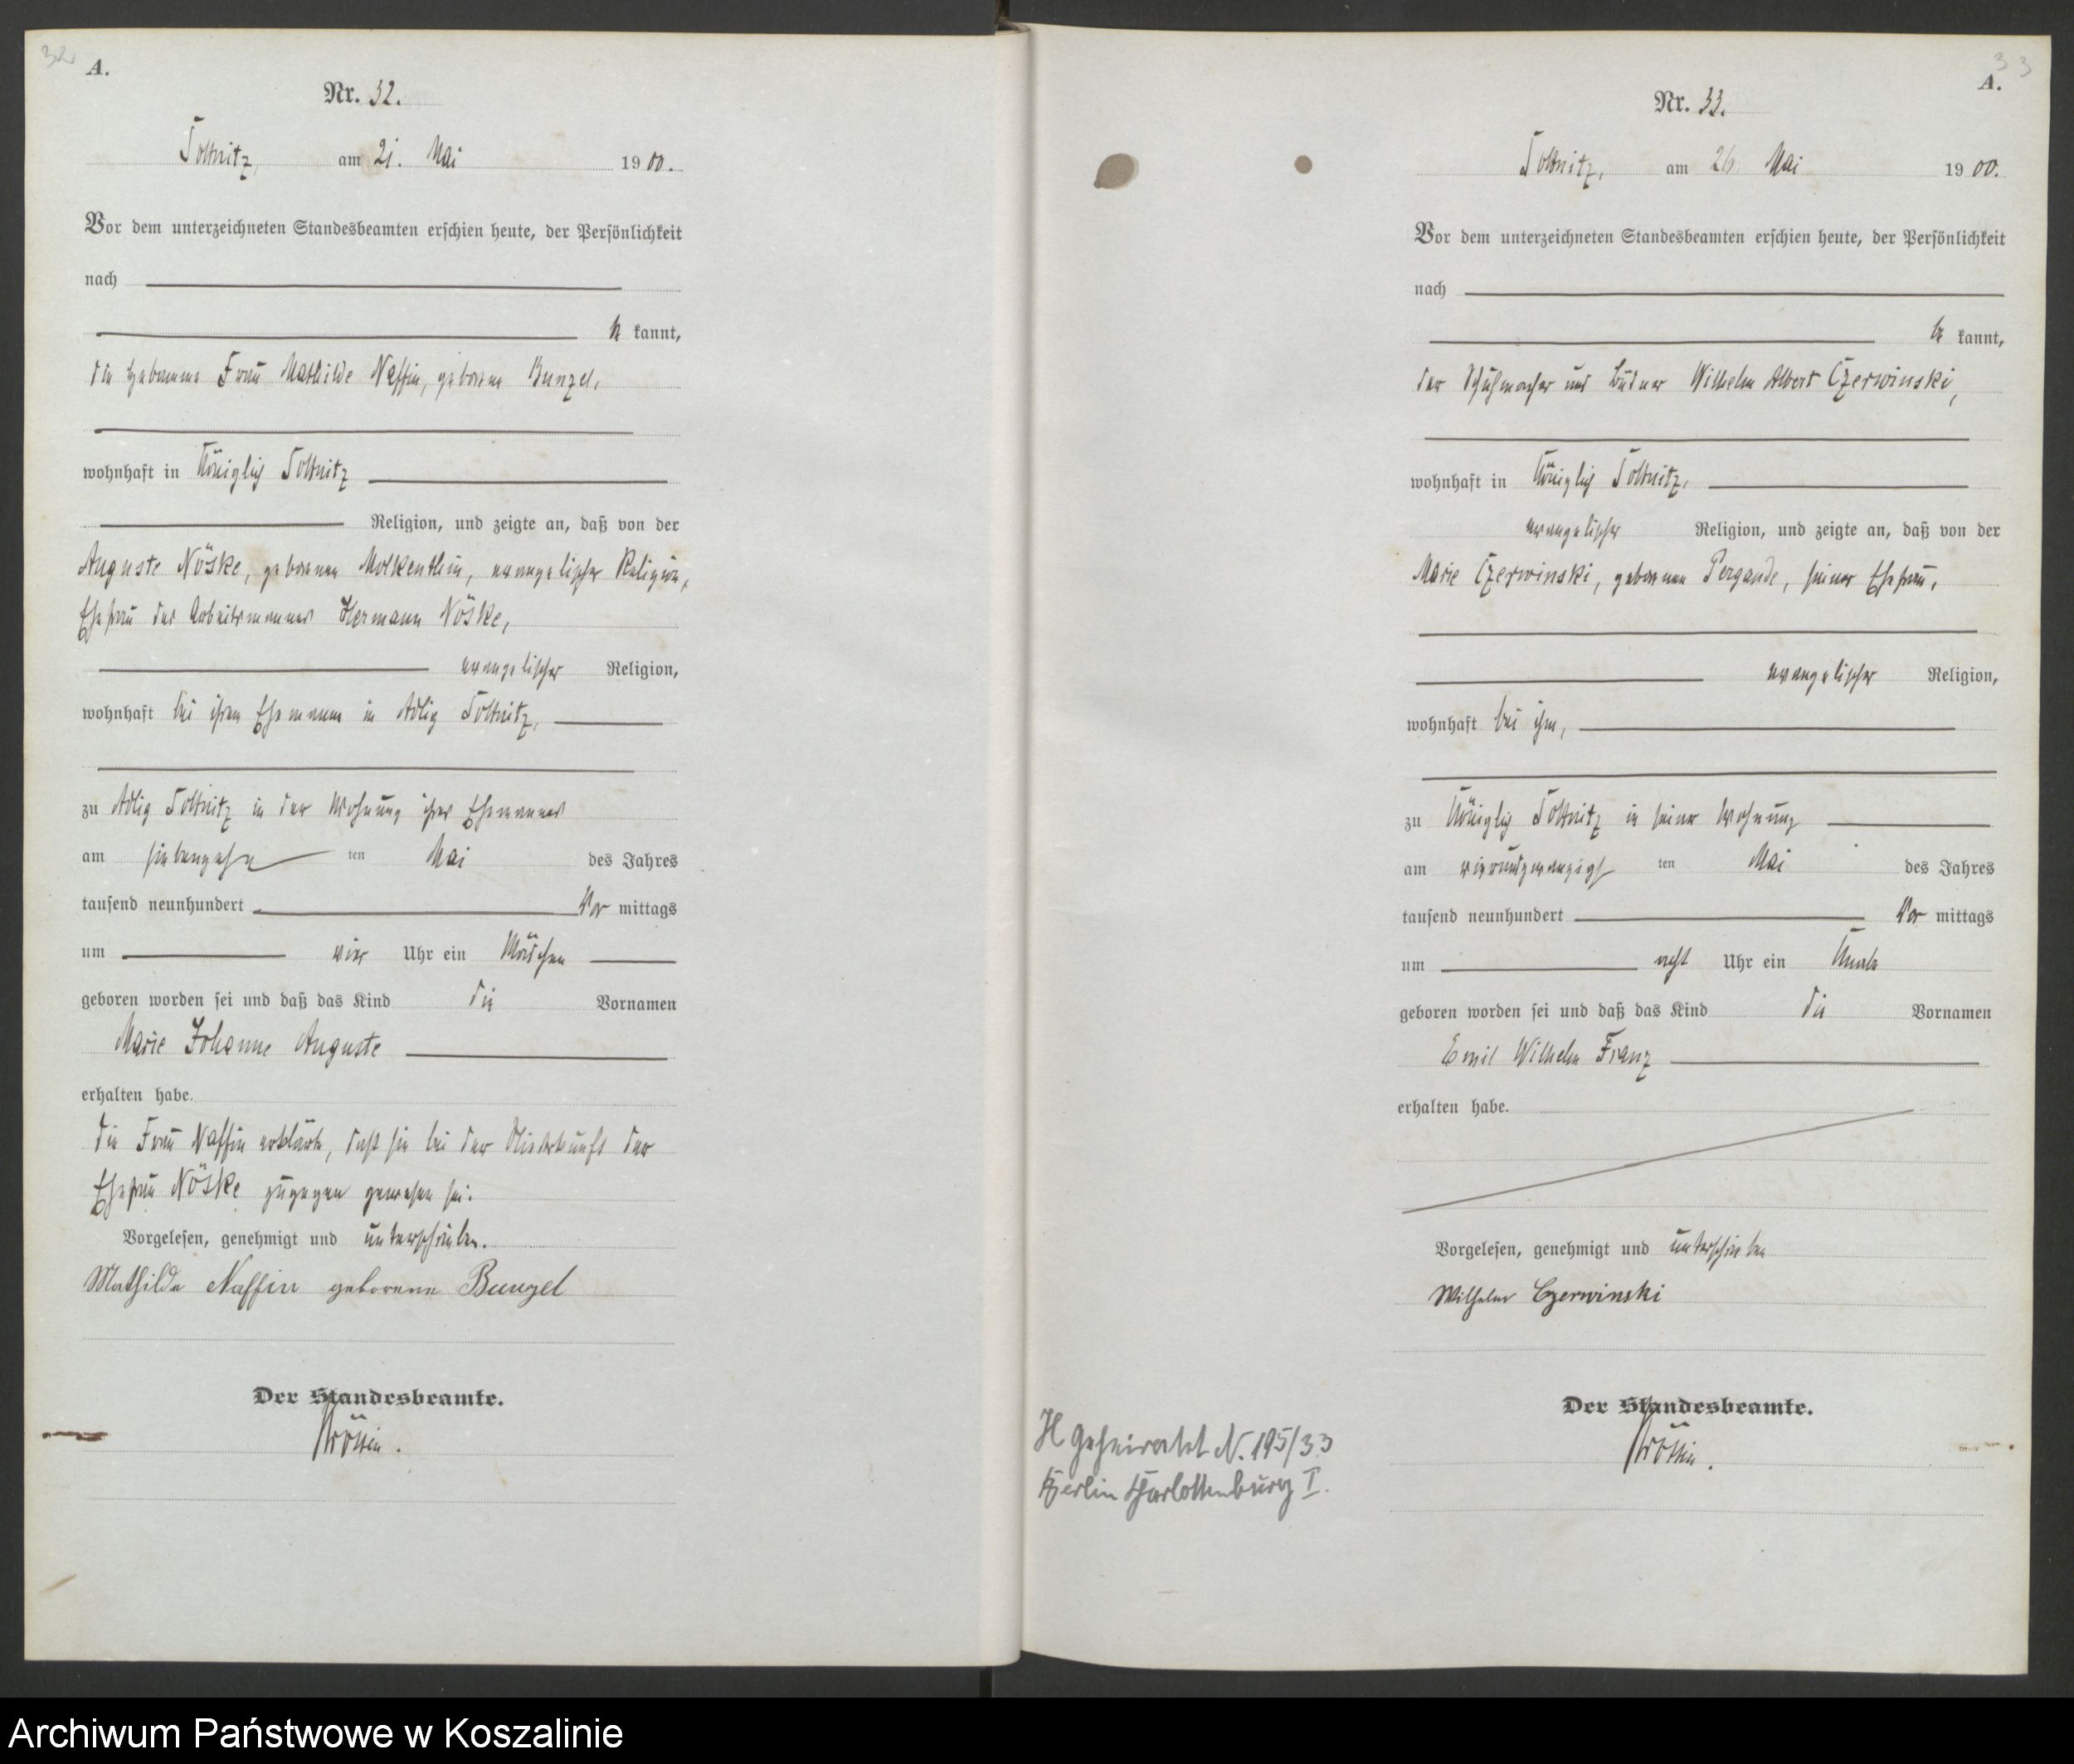 32
A.
Nr. 32.
Soltnitz, am 21. Mai 1900.
Vor dem unterzeichneten Standesbeamten erschien heute, der Persönlichkeit
nach
be kannt,
die Hebamme Frau Mathilde Naffin, geborene Bunzel,
wohnhaft in Königlich Soltnitz
Religion, und zeigte an, daß von der
Auguste Nöske, geborenen Molkenthin, evangelischer Religion,
Ehefrau des Arbeitsmannes Hermann Nöske,
evangelischer Religion,
wohnhaft bei ihrem Ehemann in Adlig Soltnitz,
zu Adlig Soltnitz in der Wohnung ihres Ehemannes
am siebenzehn ten Mai des Jahres
tausend neunhundert Vor mittags
um vier Uhr ein Mädchen
geboren worden sei und daß das Kind die Vornamen
Marie Johanne Auguste
erhalten habe.
Die Frau Naffin erklärte, daß sie bei der Niederkunft der
Ehefrau Nöske zugegen gewesen sei.
Vorgelesen, genehmigt und unterschrieben.
Mathilde Naffin geborene Bunzel
Der Standesbeamte.
33
A.
Nr. 33.
Soltnitz, am 26. Mai 1900.
Vor dem unterzeichneten Standesbeamten erschien heute, der Persönlichkeit
nach
be kannt,
der Schuhmacher und Büdner Wilhelm Albert Czerwinski,
wohnhaft in Königlich Soltnitz,
evangelischer Religion, und zeigte an, daß von der
Marie Czerwinski, geborenen Pergande, seiner Ehefrau,
evangelischer Religion,
wohnhaft bei ihm,
zu Königlich Soltnitz in seiner Wohnung
am vierundzwanzigst ten Mai des Jahres
tausend neunhundert Vor mittags
um acht Uhr ein Knabe
geboren worden sei und daß das Kind die Vornamen
Emil Wilhelm Franz
erhalten habe.
Vorgelesen, genehmigt und unterschrieben
Wilhelm Czerwinski
Der Standesbeamte.
Geheiratet N. 195/33
Berlin Charlottenburg I.
Archiwum Państwowe w Koszalinie